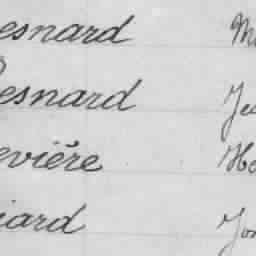 esnard M
esnard Je
evière He
iard Jo